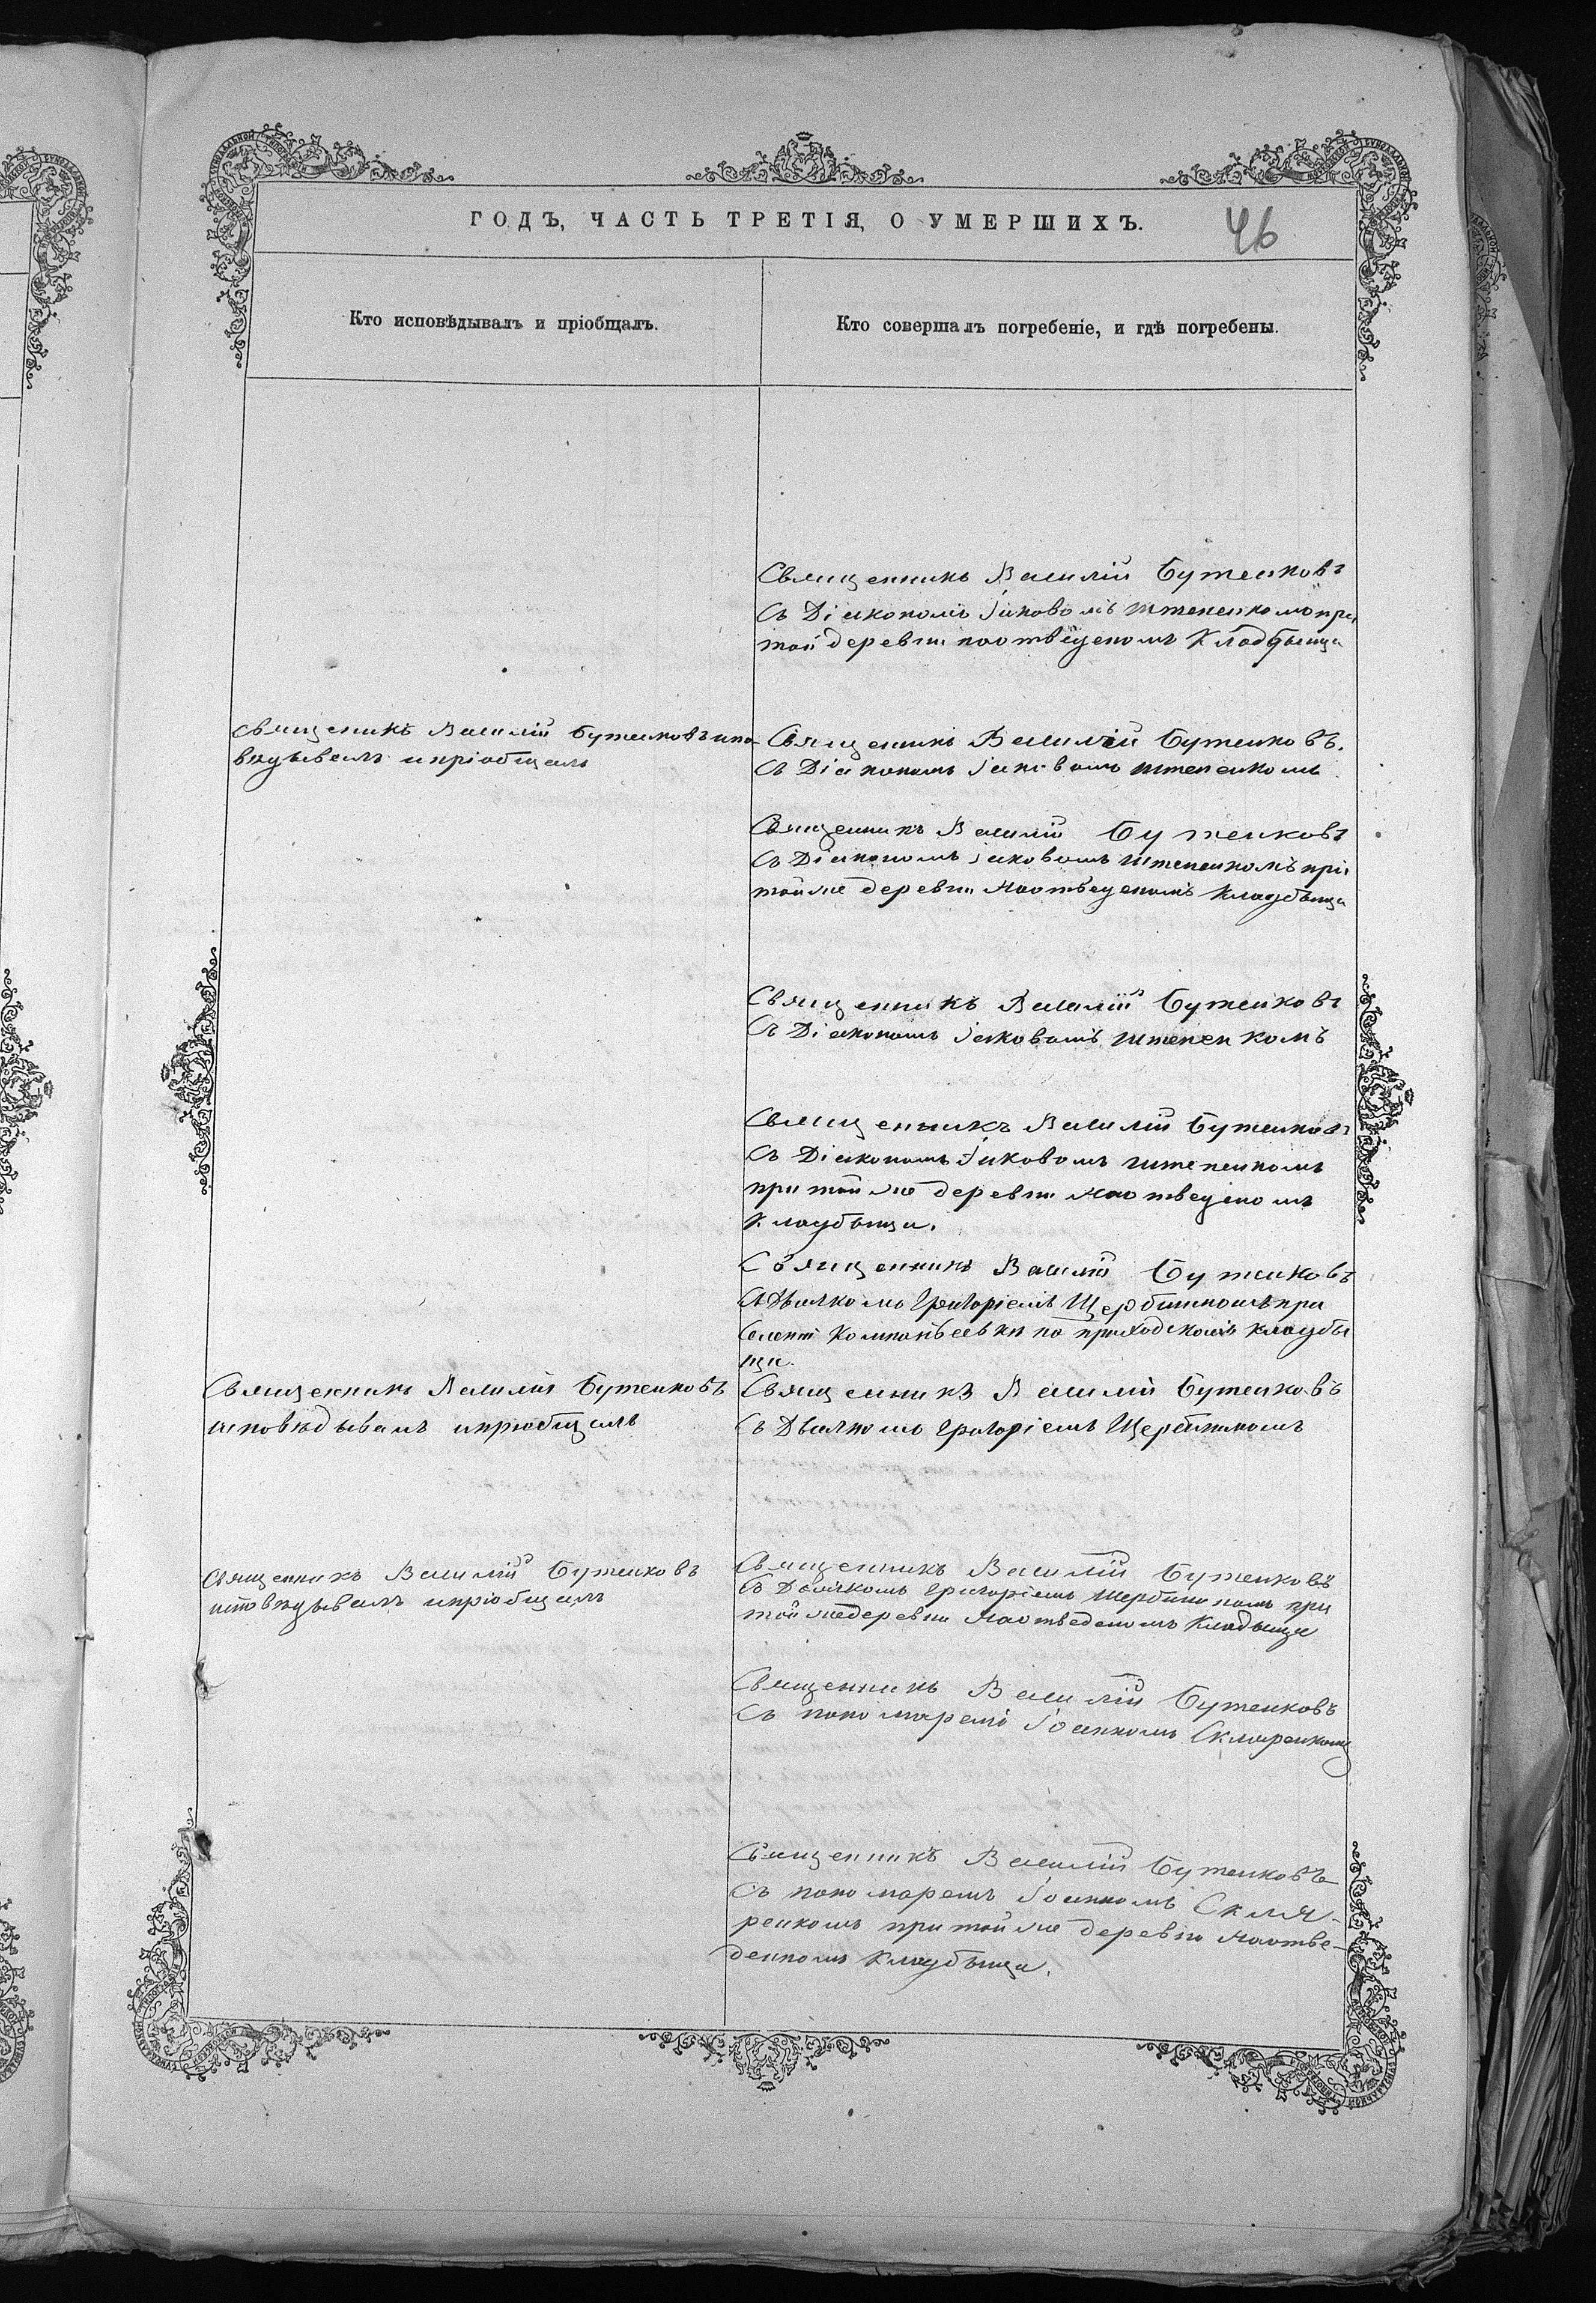 ГОДЪ, ЧАСТЬ ТРЕТІЯ, О УМЕРШИХЪ.
46
Кто исповѣдывалъ и пріобщалъ.
Кто совершалъ погребеніе, и гдѣ погребены.
Священникъ Василій Бутенковъ
съ Діакономъ Іаковомъ Штепенкомъ при
той деревни на отведеномъ Кладбыща
Священикъ Василій Бутенковъ испо-
вѣдывалъ и пріобщалъ
Священникъ Василій Бутенковъ.
съ Діакономъ Іаковомъ Штепенкомъ
Священникъ Василій Бутенковъ
съ Діакономъ Іаковомъ Штепенкомъ при
той же деревни на отведеномъ Кладбыща
Священникъ Василій Бутенковъ
съ Діакономъ Іаковомъ Штепенкомъ
Священникъ Василій Бутенковъ
съ Діакономъ Іаковомъ Штепенкомъ
при той же деревни на отведеномъ
Кладбыща.
Священникъ Василій Бутенковъ
съ Дьячкомъ Григоріемъ Щербинкомъ при
Компанѣевки на приходскомъ кладбы
ща.
Священникъ Василій Бутенковъ
исповѣдывалъ и пріобщалъ
Священникъ Василій Бутенковъ
съ Дьячкомъ Григоріемъ Щербинкомъ
Священникъ Василій Бутенковъ
исповѣдывалъ и пріобщалъ
Священникъ Василій Бутенковъ
съ Дьячкомъ Григоріемъ Щербинкомъ при
той же деревни на отведеномъ Кладбыща
Священникъ Василій Бутенковъ
съ пономаремъ Іоанномъ Скляренкомъ
Священникъ Василій Бутенковъ
съ пономаремъ Іоанномъ Скля-
ренкомъ при той же деревни на отве-
денномъ Кладбыща.